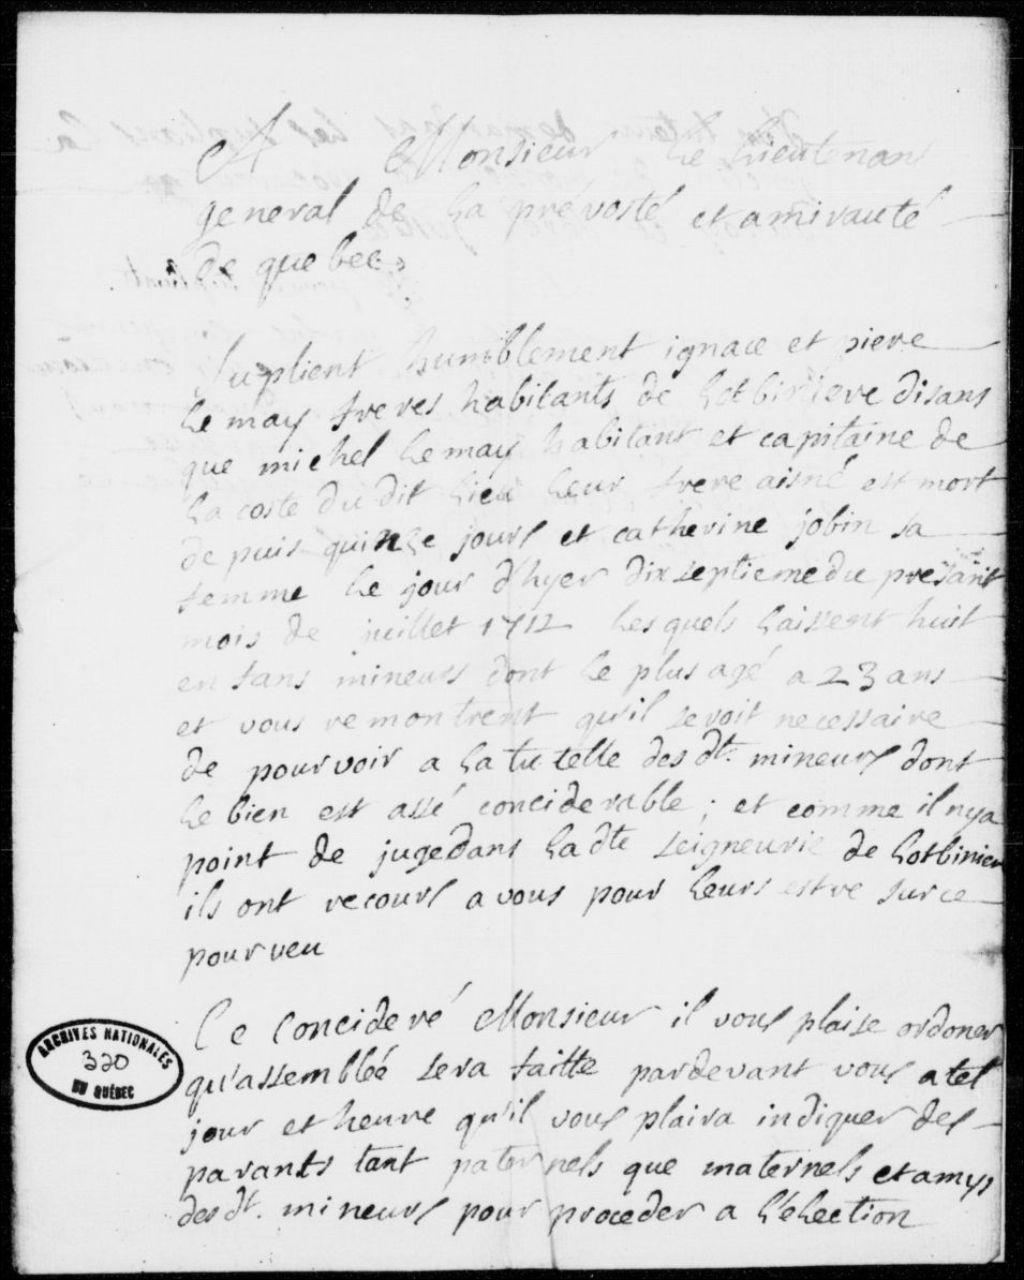 A Monsieur le Lieutenant
general de la prévosté et amirauté
de quebec
Suplient humblement ignace et piere
le may freres habitants de lotbiniere disans
que michel le may habitant et capitaine de
la coste du dit lieu leur frere aisné est mort
depuis quinze jours et catherine jobin sa
femme le jour d'hyer dix septieme du presant
mois de juillet 1712 lesquels laissent huit
enfans mineurs dont le plus agé a 23 ans
et vous remontrent qu'il seroit necessaire
de pourvoir a la tutelle des dt. mineurs dont
le bien est assé conciderable ; et comme il nya
point de juge dans la dte seigneurie de lotbinier
ils ont recours a vous pour leurs estre sur ce
pourveu
Ce Concideré Monsieur il vous plaise ordoner
qu'assemblée sera faitte pardevant vous a tel
jour et heure qu'il vous plaira indiquer des
parants tant paternels que maternels et amys
des dt. mineurs pour proceder a l'election
ARCHIVES NATIONALES
320
DU QUÉBEC